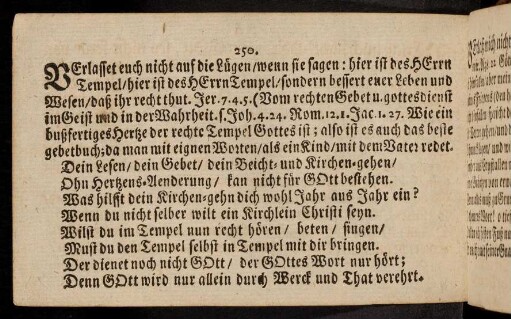 250.
VErlasset euch nicht auf die Lügen/wenn sie sagen: hier ist des HErrn
Tempel/hier ist des HErrn Tempel/sondern bessert euer Leben und
Wesen/daß ihr recht thut. Jer.7.4.5.(Vom rechten Gebet u.gottesdienst
im Geist und in der Wahrheit.s.Joh.4.24.Rom.12.1.Jac.1.27. Wie ein
bußfertiges Hertze der rechte Tempel Gottes ist; also ist es auch das beste
gebetbuch:da man mit eignen Worten/als ein Kind/mit dem Vater redet.
Dein Lesen/dein Gebet/dein Beicht- und Kirchen-gehen/
Ohn Hertzens-Aenderung/ kan nicht für GOtt bestehen.
Was hilfft dein Kirchen-gehn dich wohl Jahr aus Jahr ein?
Wenn du nicht selber wilt ein Kirchlein Christi seyn.
Wilst du im Tempel nun recht hören/ beten/ singen/
Must du den Tempel selbst in Tempel mit dir bringen.
Der dienet noch nicht GOtt/ der GOttes Wort nur hört;
Denn GOtt wird nur allein durch Werck und That verehrt.